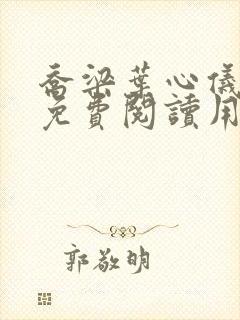 喬梁葉心儀
免費閱讀用
郭敬明